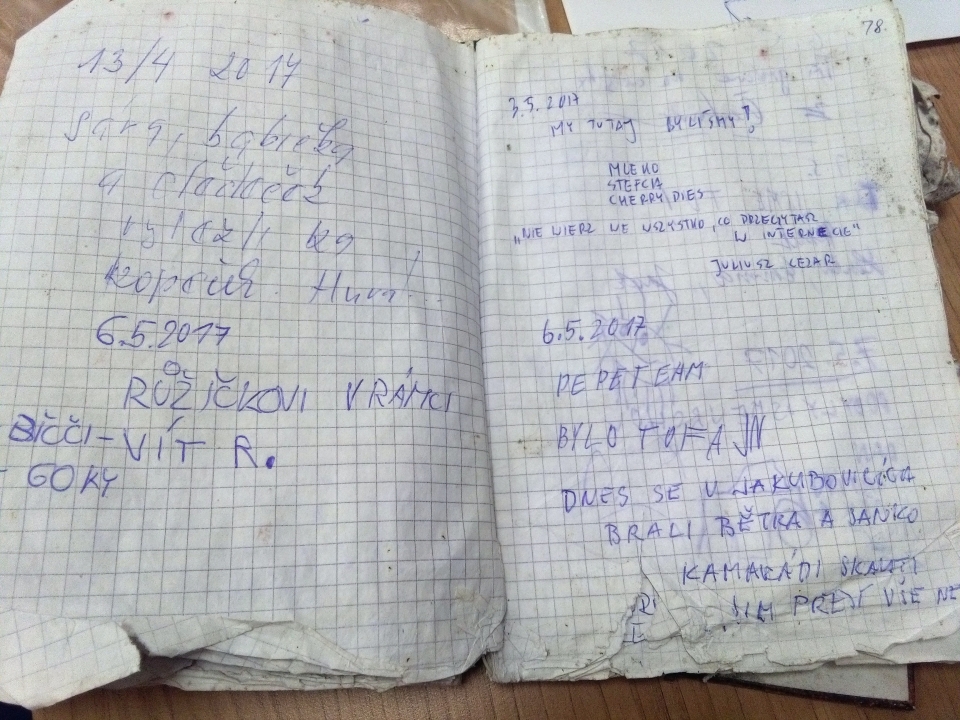 13/4 2017
Sára, babička
a
vylezli
kopeček. Hurá!
6.5.2017
RŮŽIČKOVI V RÁMCI
VÍT R.
GO KY
78.
3.5.2017
MY TUTAJ BYLIŚMY!
MLEKO
STEFCIA
CHERRY DIES
„NIE WIERZ WE WSZYSTKO, CO PRZECZYTASZ
W INTERNECIE"
JULIUSZ CEZAR
6.5.2017
PEPETEAM
BYLO TO FAJN
DNES SE V JAKUBOVICÍCH
BRALI BĚTKA A JANKO
KAMARÁDI SKAUTI
JIM PŘEJÍ VŠE NE